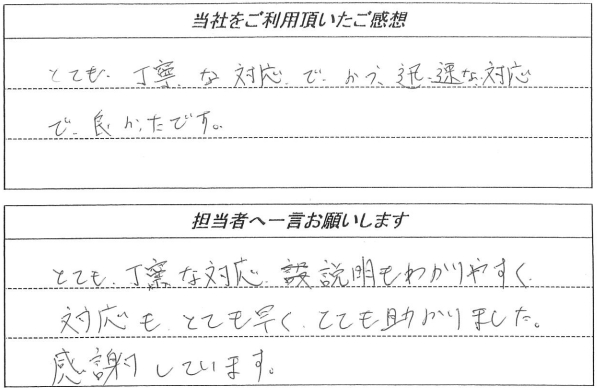 当社をご利用頂いたご感想
とても丁寧な対応で、かつ、迅速な対応
で、良かったです。
担当者へ一言お願いします
とても、丁寧な対応、説明もわかりやすく、
対応も、とても早く、とても助かりました。
感謝しています。